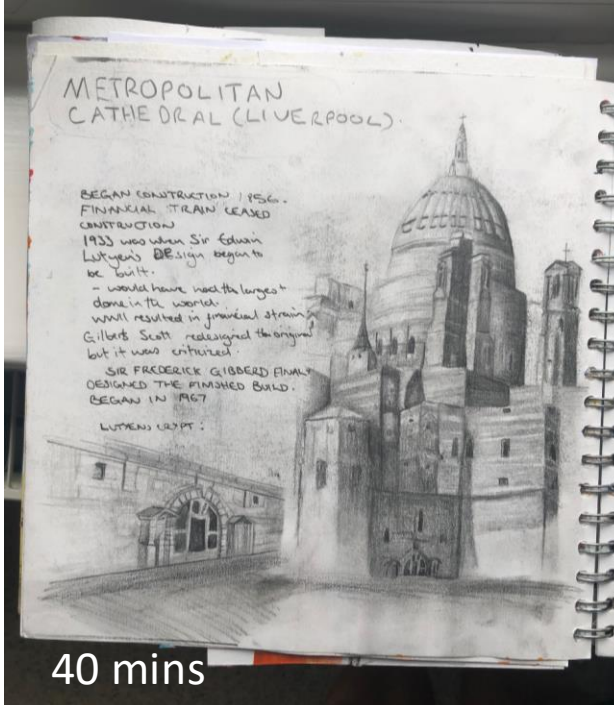 METROPOLITAN
CATHEDRAL (LIVERPOOL).
BEGAN CONSTRUCTION 1856.
FINANCIAL TRAIN CEASED
CONSTRUCTION
1933 was when Sir Edwin
Lutyen's DEsign began to
be built.
- would have had the largest
dome in the world.
WWII resulted in financial strain,
Gilbert Scott redesigned the original
but it was criticized.
SIR FREDERICK GIBBERD FINALY
DESIGNED THE FINISHED BUILD.
BEGAN IN 1967
LUTYENS CRYPT :
40 mins